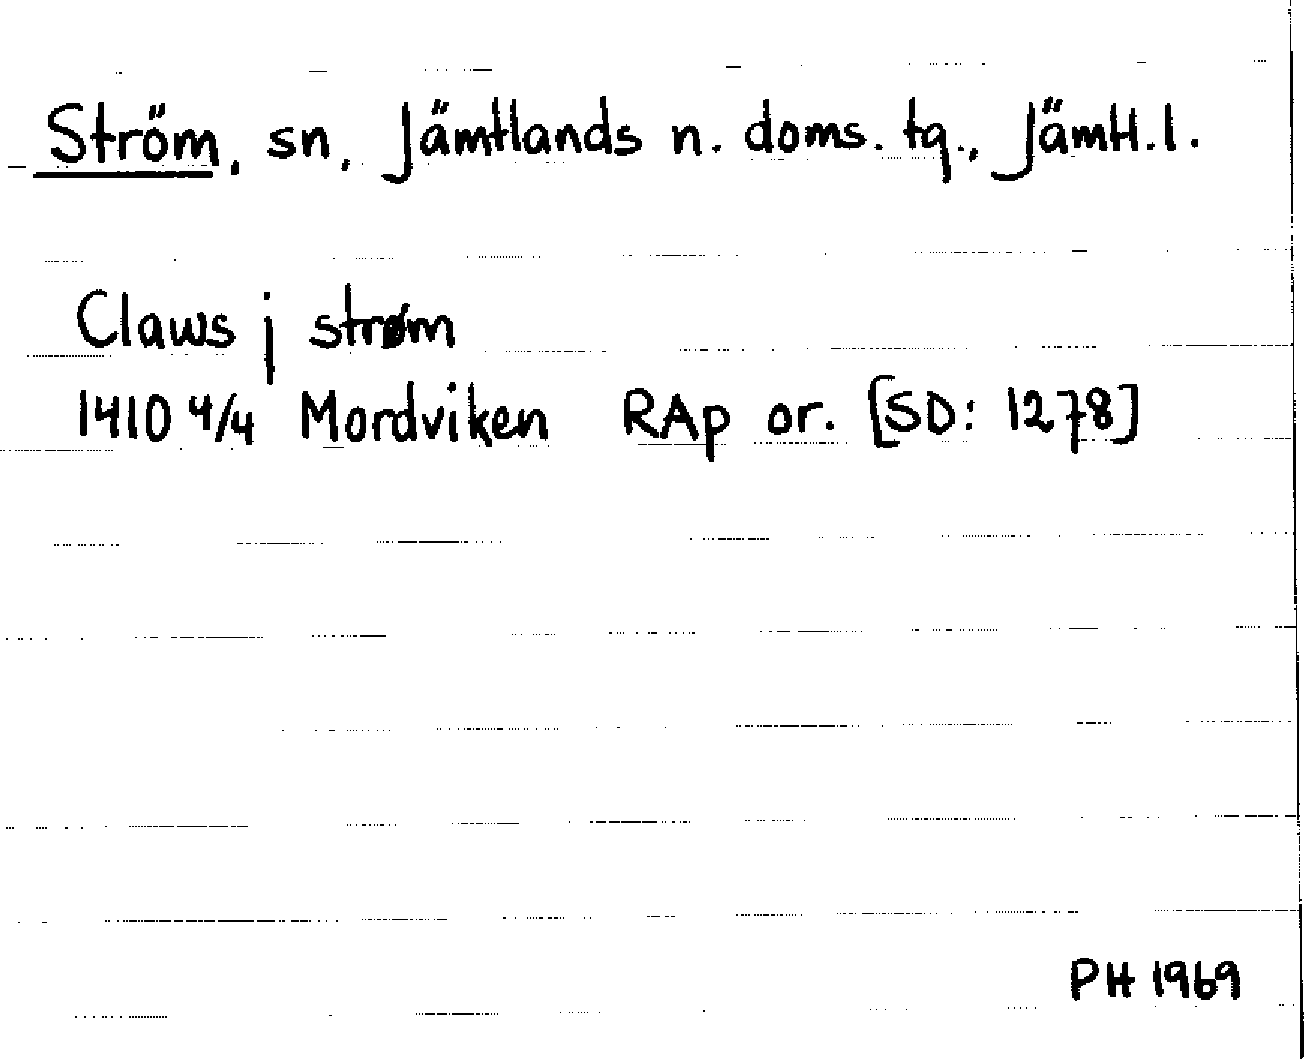 Ström, sn, Jämtlands n. doms. tg., Jämtl. l.
Claws j strøm
1410 4/4 Mordviken RAp or. [SD: 1278]
PH 1969